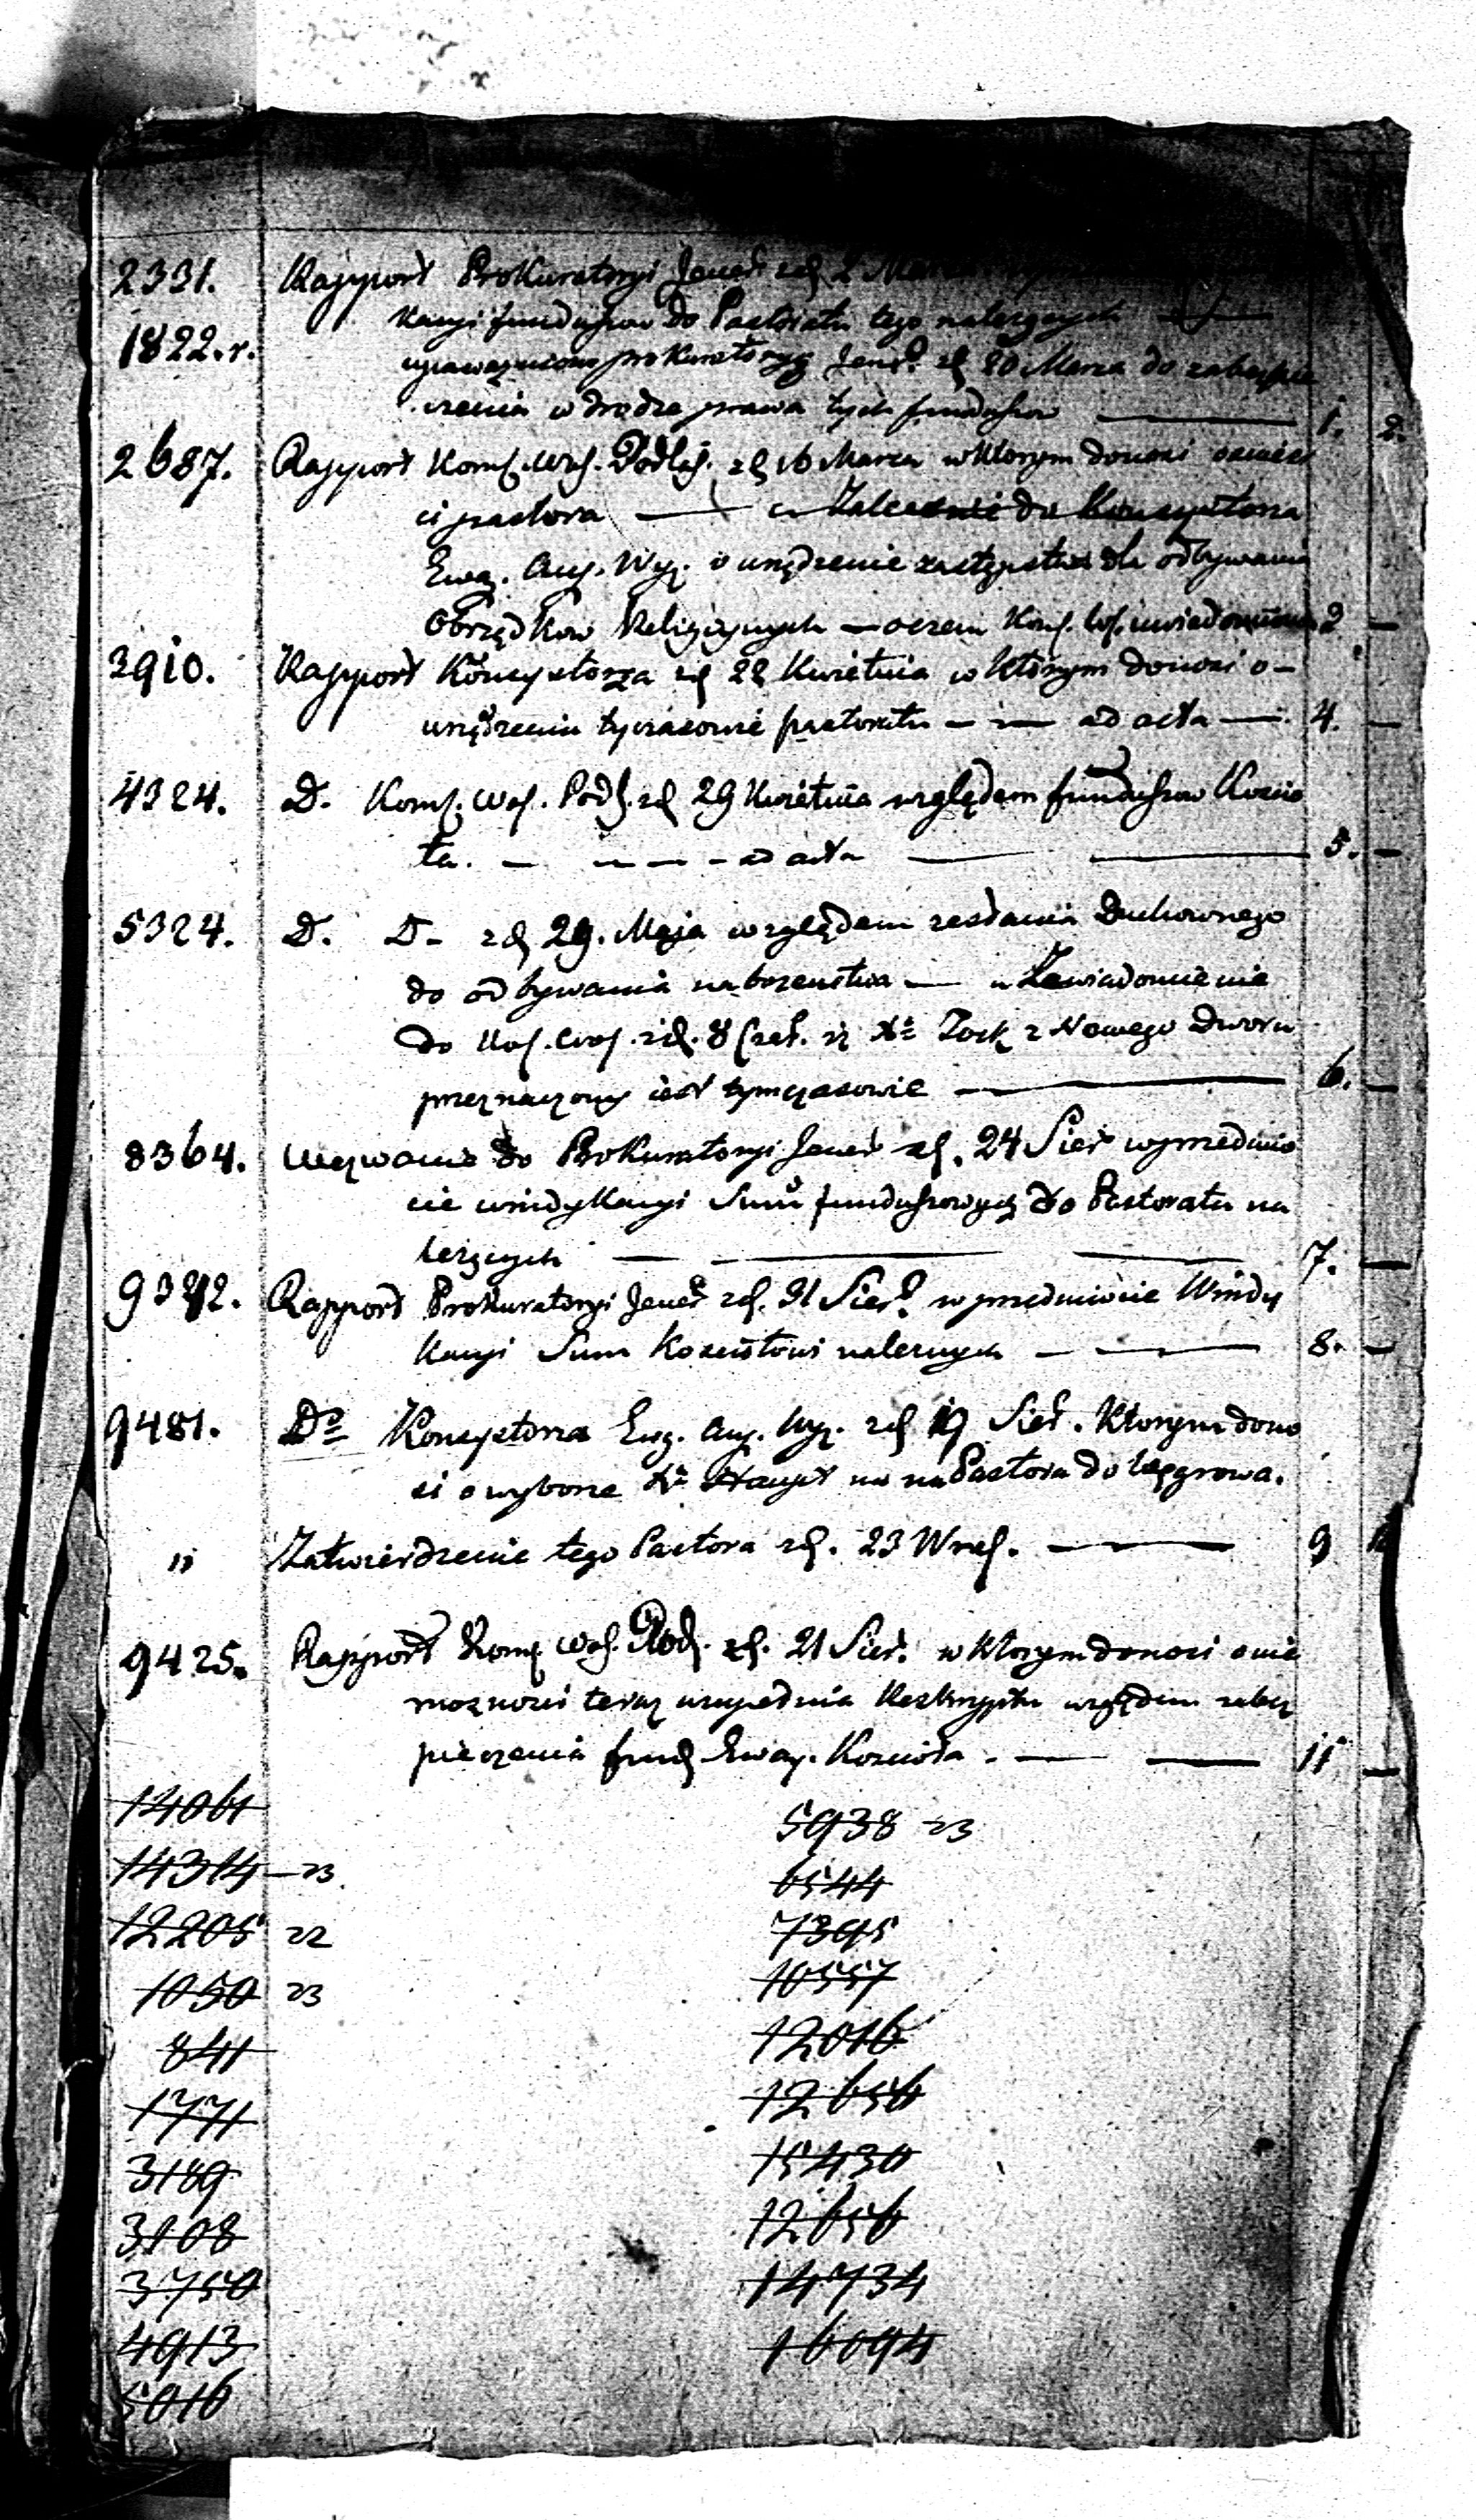 2331. Rapport Prokuratoryi Jener. zd. 2 Marca
1822. r. kacyi funduszow do Pastoratu tego należących —
upoważniono prokuratoryą Jener. zd. 20 Marca do zabespie
czenia w drodze prawa tych funduszow — 1. 2.
2687. Rapport Kom. Woj. Podlas. zd. 16 Marca w ktorym donosi o śmier
ci pastora — Zalecenie do Konsystorza
Ewa. Aug. Wyz. o urządzenie zastępstwa dla odbywania
Obrządkow Religiynych — o czem Kom. Woj. uwiadomiono 2 —
3910. Rapport Konsystorza zd. 22 Kwietnia w ktorym donosi o –
urządzeniu tymczasowie pastoratu — — ad acta — 4. —
4324. D. Kom. Woj. Podl. zd. 29 Kwietnia względem funduszow Kościo
ła. — — — - ad acta — — 5. —
5324. D. D– zd. 29. Maja względem zesłania Duchownego
do odbywania nabozenstwa — Zawiadomienie
do Kom. Woj. zd. 8 Czer. iż Xs z Nowego Dworu
przeznaczony iest tymczasowie — 6. —
8364. Wezwanie do Prokuratoryi Jener zd. 24 Sier w przedmio
cie windykacyi Summ funduszowych do Pastoratu na
leżących — — — 7. —
9382. Rapport Prokuratoryi Jener zd. 31 Sier. w przedmiocie Windy
kacyi Summ Kościołowi należnych — — 8. —
9481. Do Konsystorza Ewg. Aug. Wyz. zd. 19 Sier. Ktorym dono
si o wyborze Xa Haupt na na Pastora do Węgrowa.
" Zatwierdzenie tego Pastora zd. 23 Wrześ. — 9
9425. Rapport Kom. Woj. Podl. zd. 21 Sier. w Ktorym donosi o nie
możności teraz uzupełnia Reskryptu względem zabez
pieczenia fund. Ewang. Kościoła. — — 11 —
14061 5938 23
14314 – 23. 6544
12205 22 7395
1050 23 10557
841 12016
1771 12656
3189 15430
3108 12656
3750 14734
4913 16094
5016